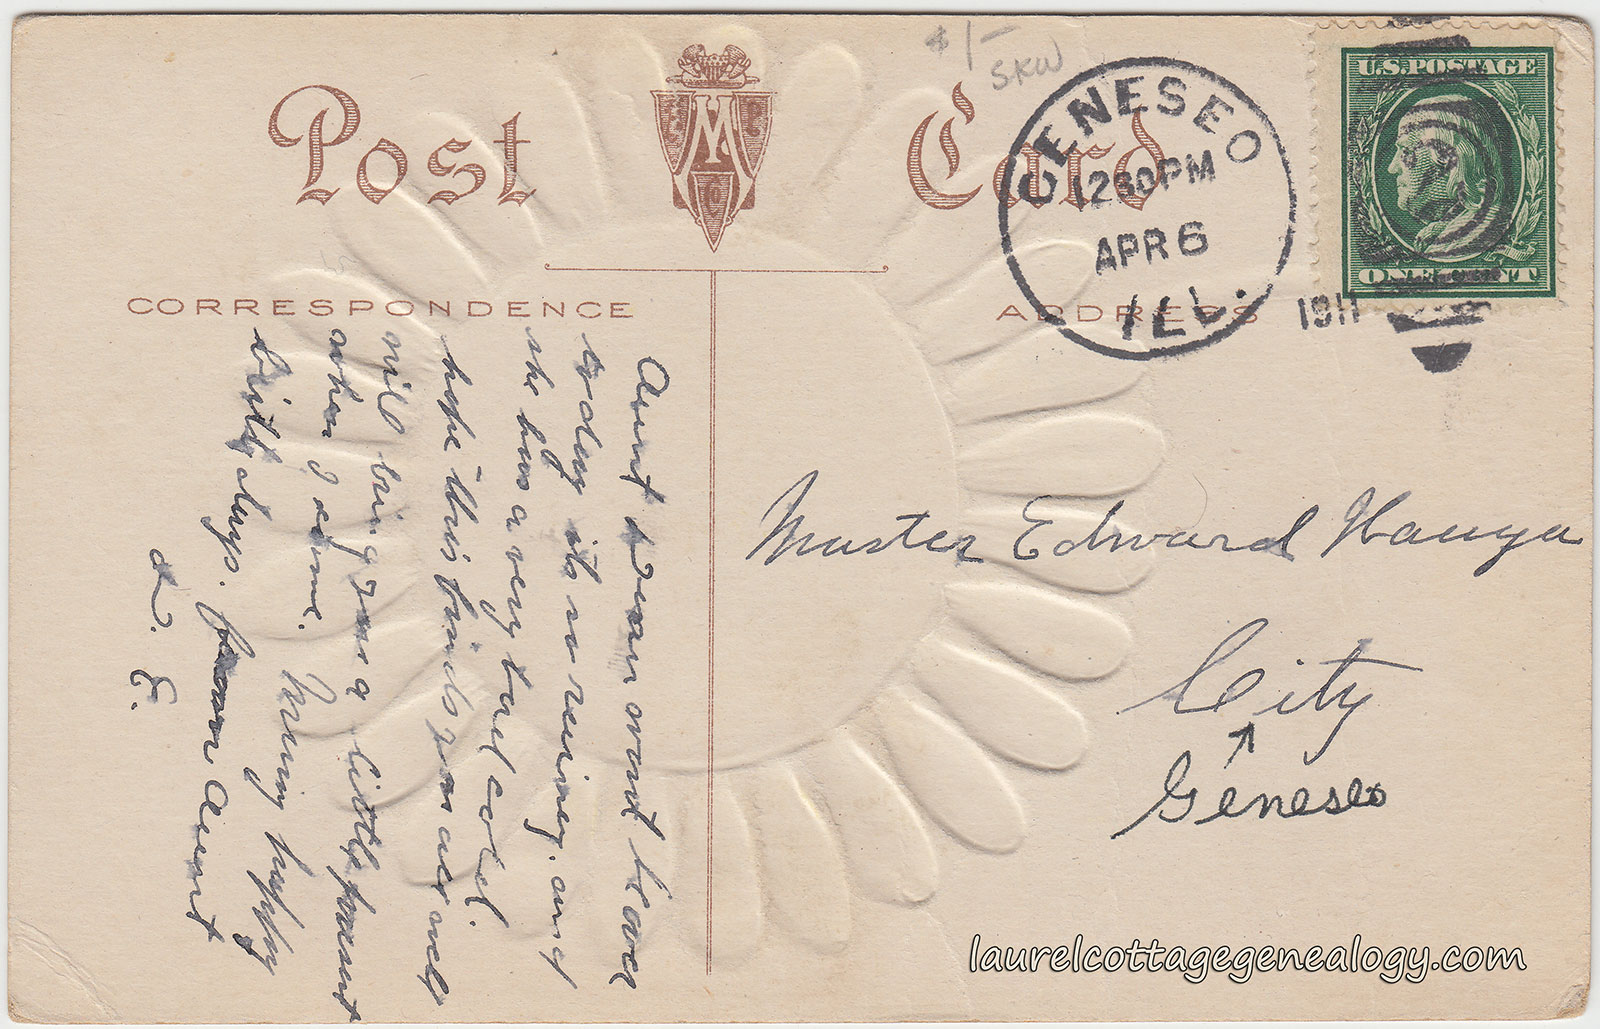 $1-
SKW
Post Card
M
GENESEO
1230PM
APR 6
ILL.
1911
U.S. POSTAGE
ONE CENT
CORRESPONDENCE
ADDRESS
Aunt wont be over
today its so rainey. and
she has a very bad cold.
hope this finds you all well
will bring you a little present
when I come. Many happy
birthdays. from Aunt
E.
Master Edward
City
Geneseo
laurelcottagegenealogy.com